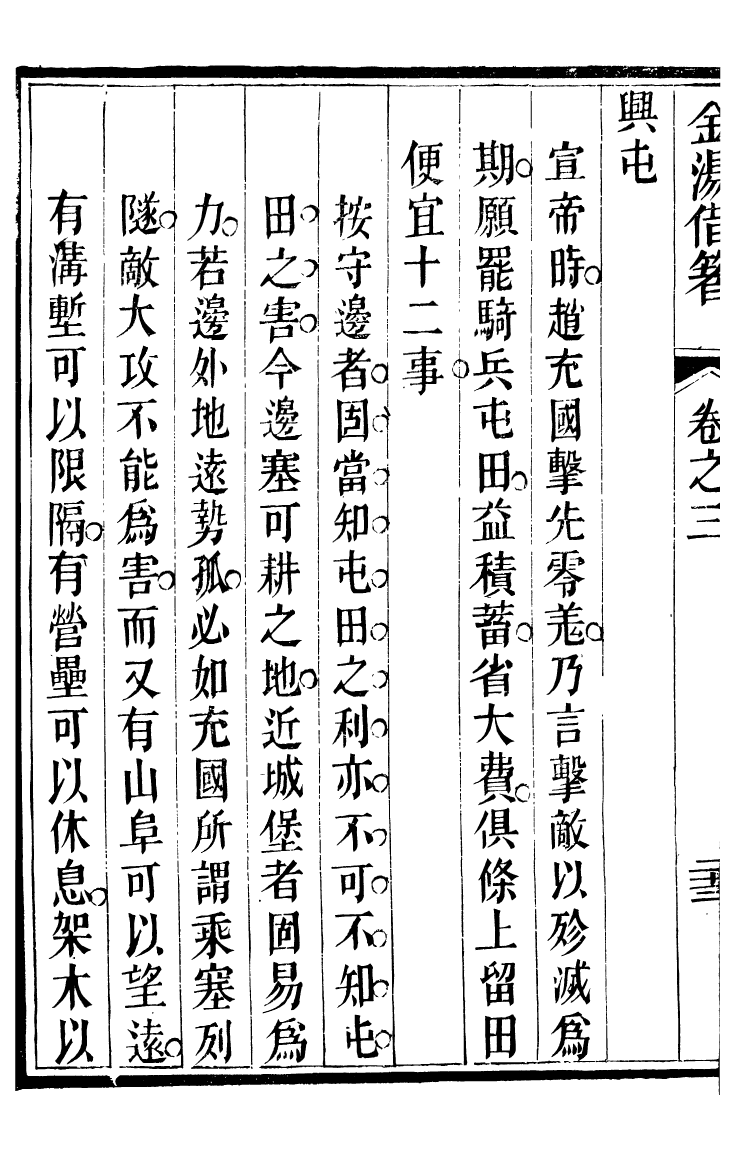 金湯借箸 卷之三 二十三
興屯
宣帝時。趙充國擊先零羌。乃言擊敵以殄滅為
期。願罷騎兵屯田。益積蓄。省大費。俱條上留田
便宜十二事。
按守邊者。固當知屯田之利。亦不可不知屯
田之害。今邊塞可耕之地。近城堡者固易為
力。若邊外地遠勢孤。必如充國所謂乘塞列
隧。敵大攻不能為害。而又有山阜可以望遠。
有溝塹可以限隔。有營壘可以休息。架木以